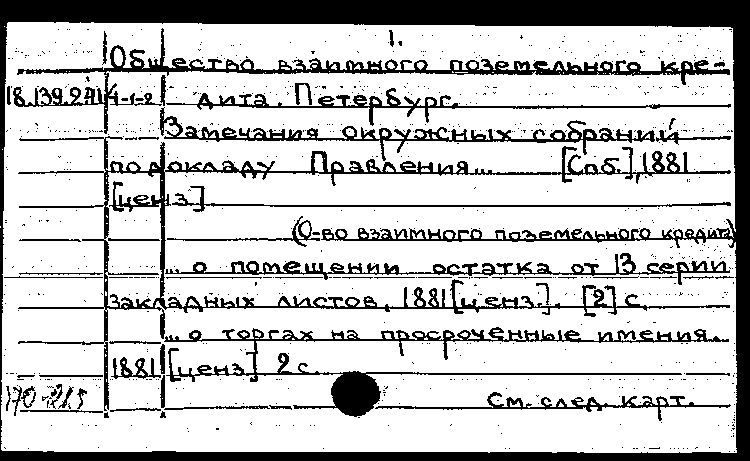 1.
Общество взаимного поземельного кре-
18.139.2.71/4-1-2 дита. Петербург.
Замечания окружных собраний
по докладу Правления... [Спб.], 1881
[ценз].
(О-во взаимного поземельного кредита)
... о помещении остатка от 13 серии
закладных листов. 1881 [ценз.]. [2] с.
... о торгах на просроченные имения...
1881 [ценз] 2 с.
См. след. карт.